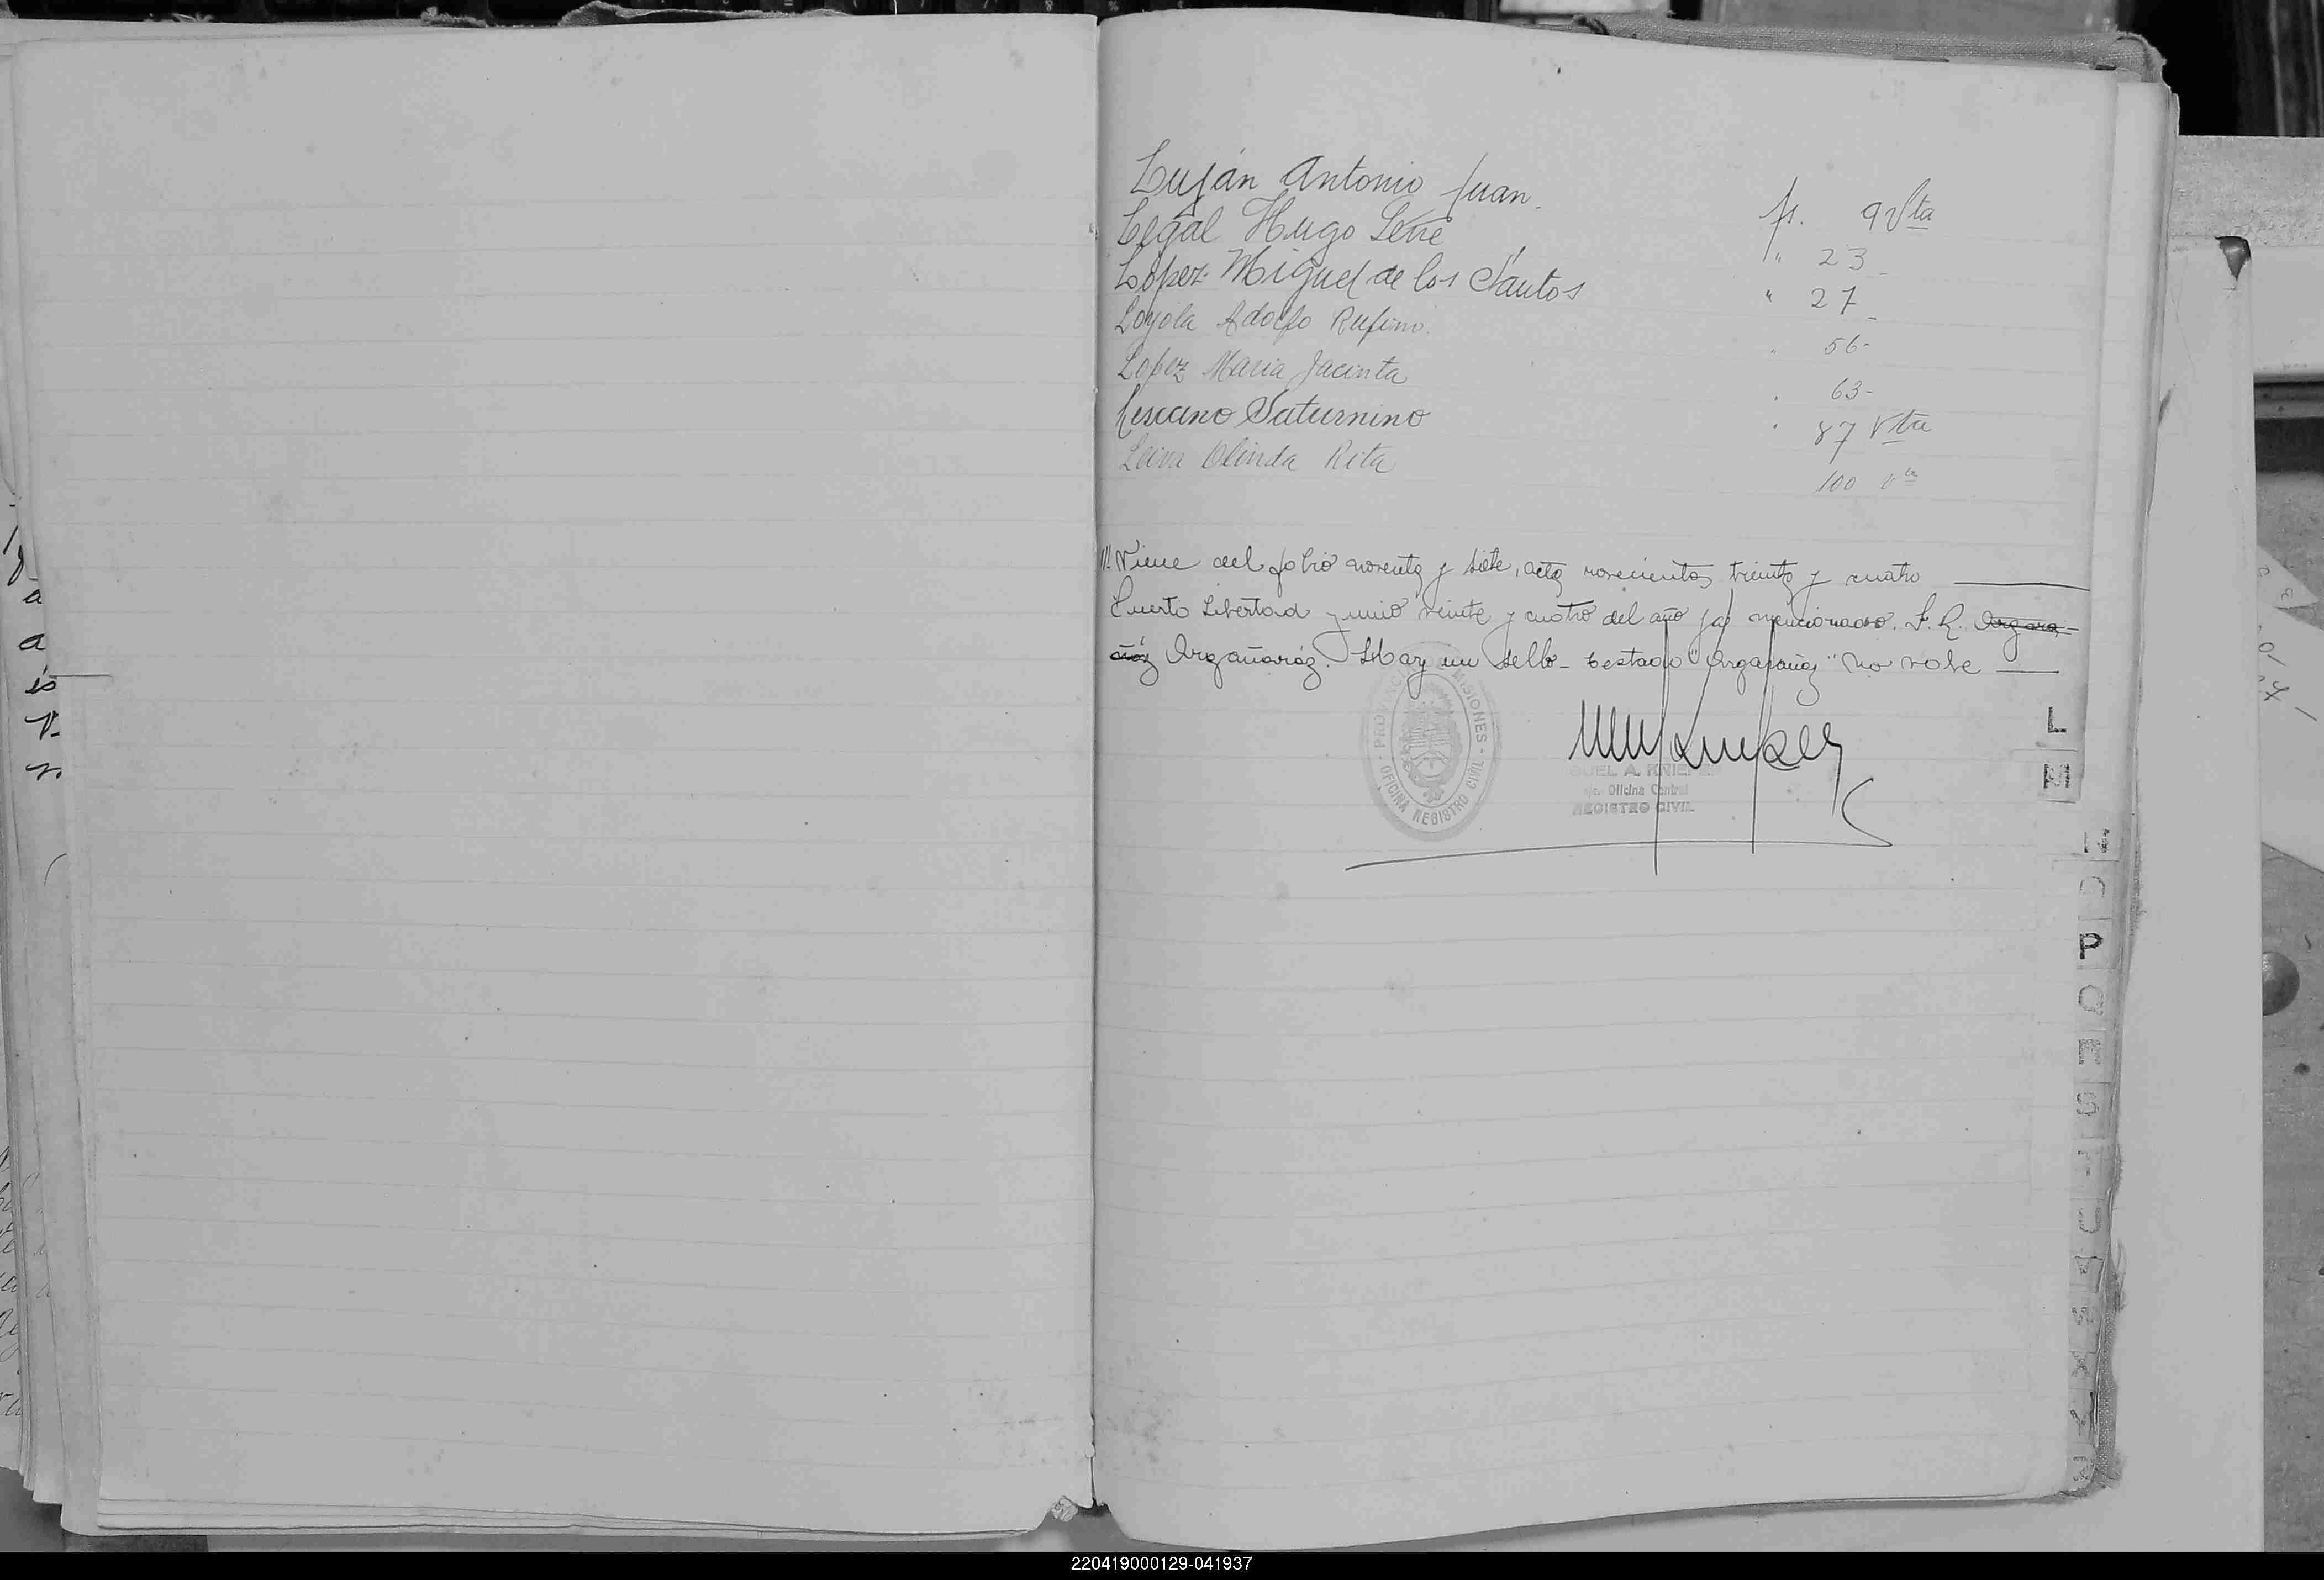 Luján Antonio Juan. fs. 9 Vta
Legal Hugo Lene " 23 -
López Miguel de los Santos " 27 -
Loyola Adolfo Rufino. " 56-
Lopez Maria Jacinta " 63-
Lescano Saturnino " 87 Vta
Leiva Olinda Rita 100 Vta
///Viene del folio noventa y siete, acta novecientos treinta y cuatro
Puerto Libertad junio veinte y cuatro del año ya mencionado. F. R. Argara-
ñáz Argañaráz. Hay un sello - testado "Argarañaz" no vale
PROVINCIA MISIONES - OFICINA REGISTRO CIVIL
A. KNIE
Oficina Central
REGISTRO CIVIL
L
M
P
Q
S
220419000129-041937